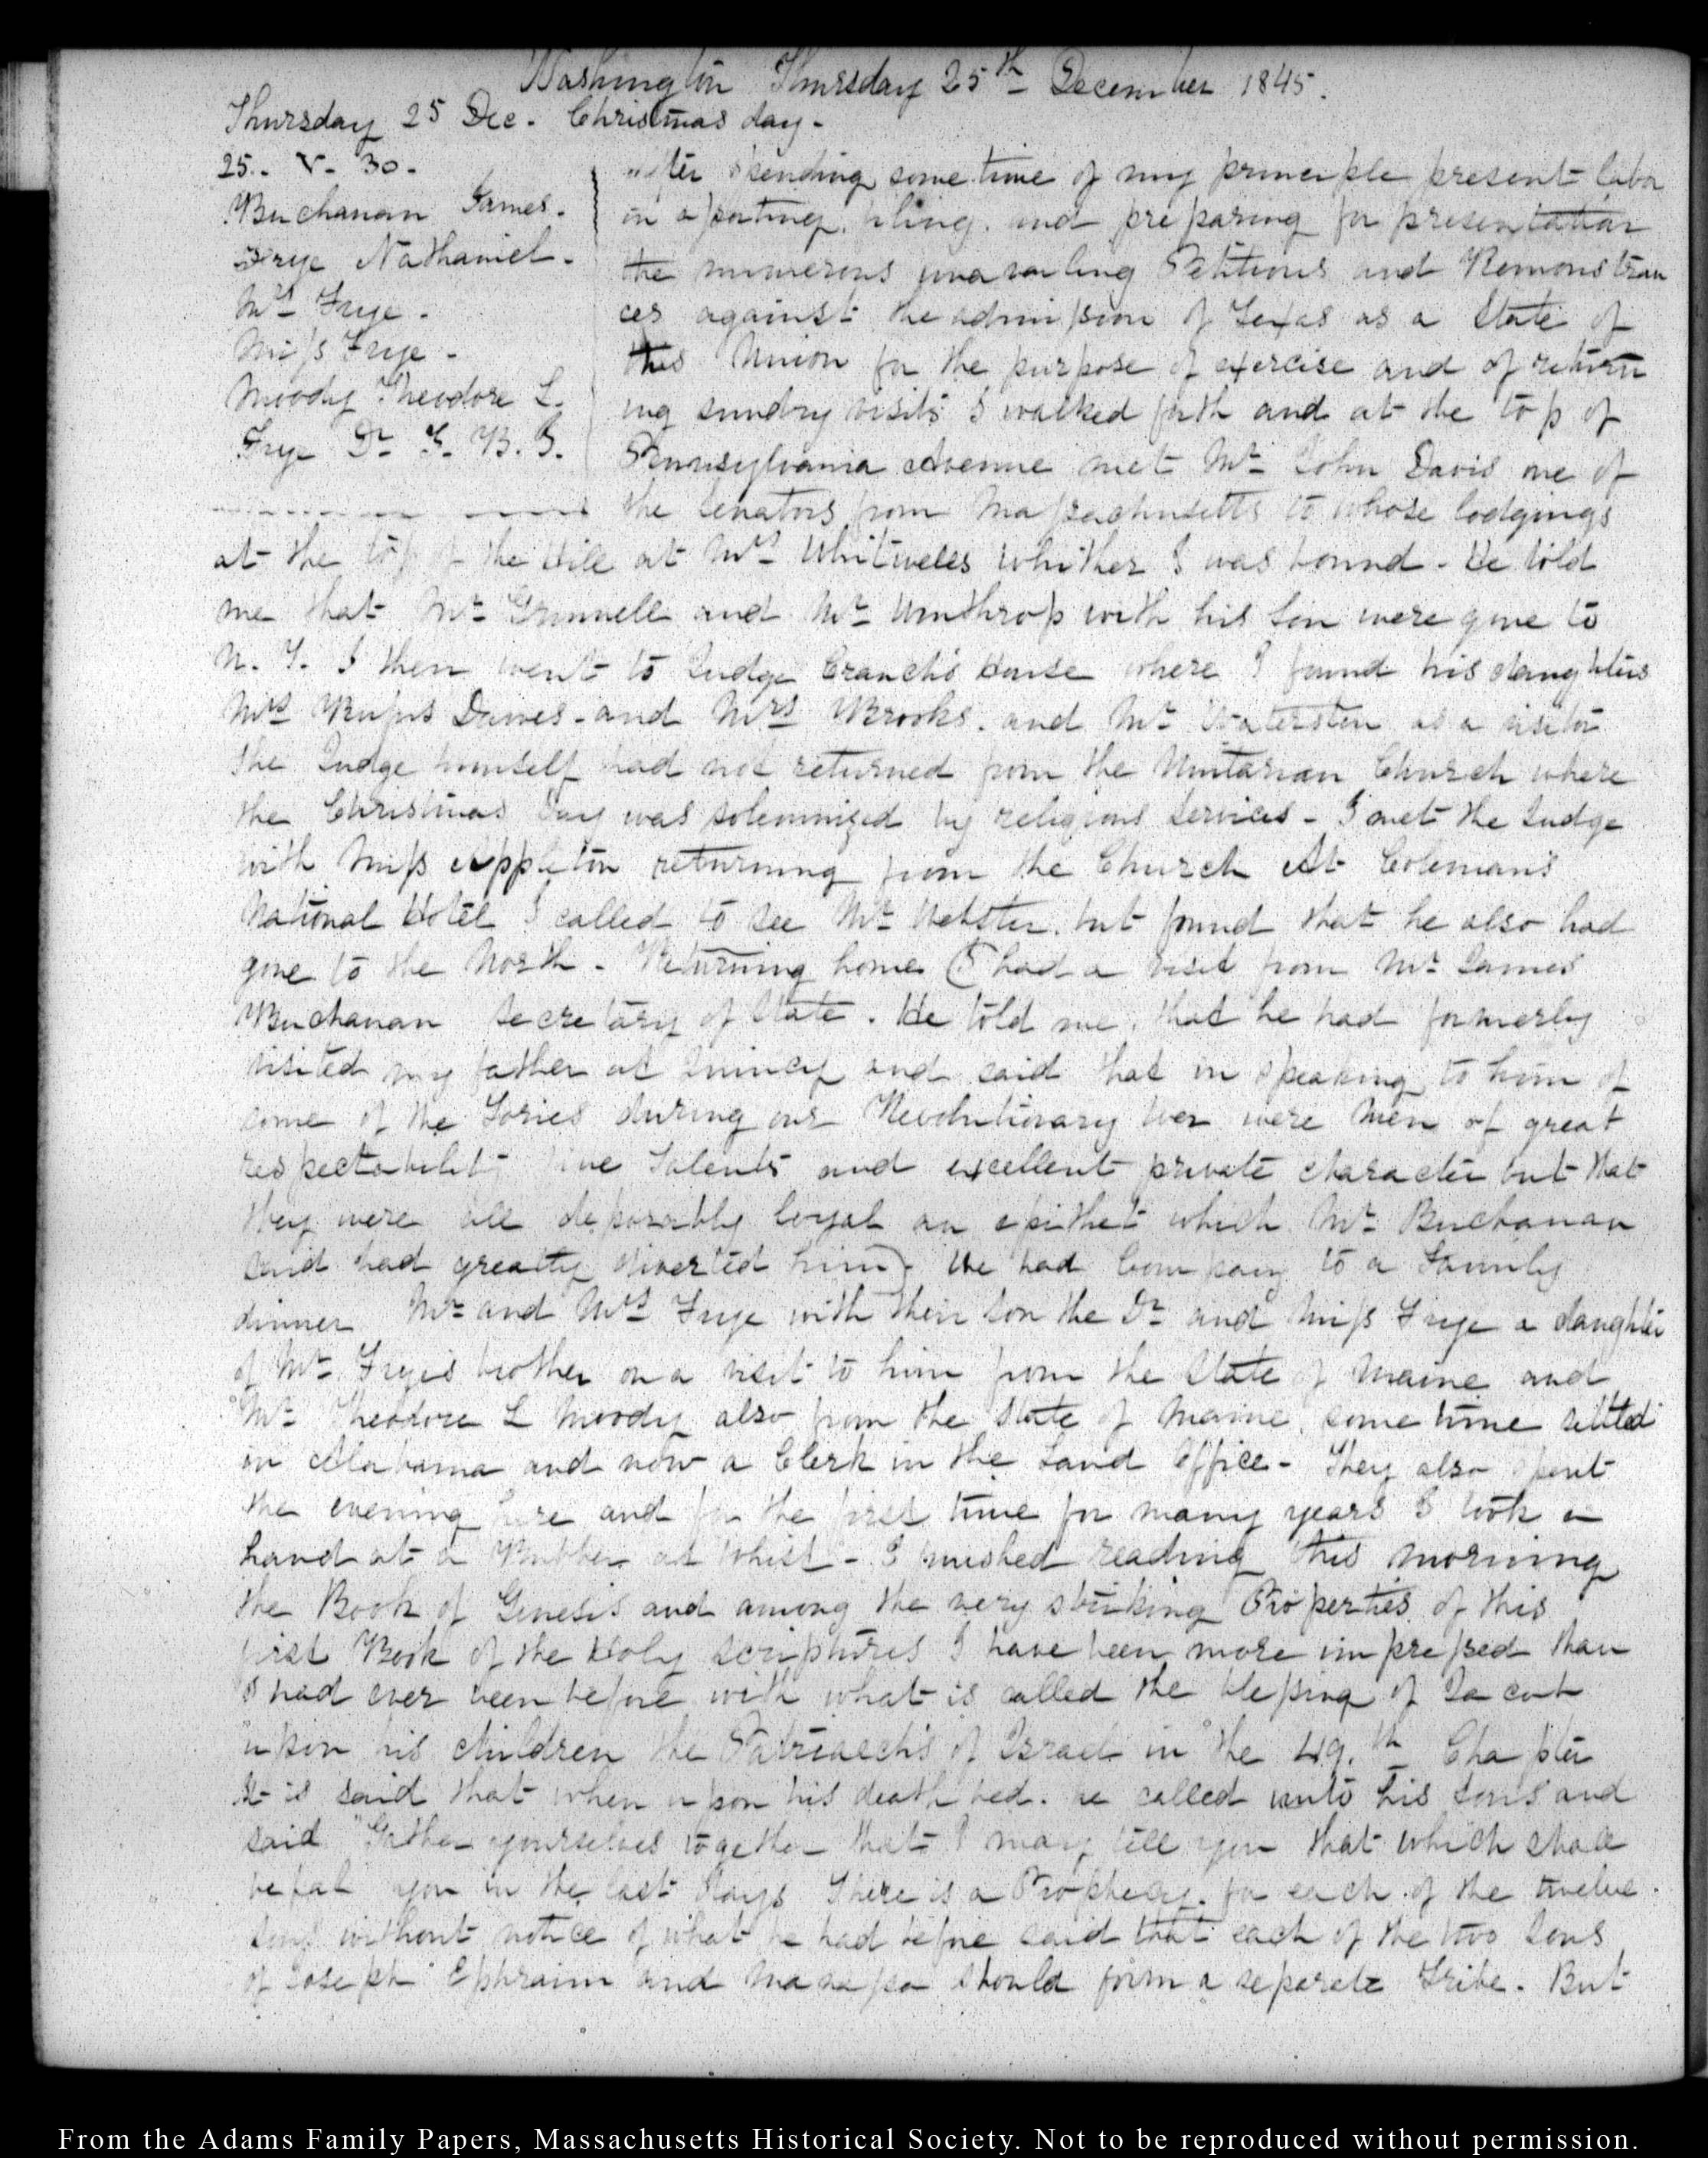 Washington Thursday 25th December 1845.
Thursday 25 Dec. Christmas day.
25. V. 30.
Buchanan James.
Frye Nathaniel.
Mrs Frye.
Miss Frye.
Moody Theodore L.
Frye Dr T. B. J.
After spending some time of my principle present labor
in assorting, filing, and preparing for presentation
the numerous unavailing Petitions and Remonstran
ces against the admission of Texas as a State of
this Union for the purpose of exercise and of return
ing sundry visits I walked forth and at the top of
Pennsylvania Avenue met Mr John Davis one of
the Senators from Massachusetts to whose lodgings
at the top of the Hill at Mrs Whitwells whither I was bound. He told
me that Mr Grinnell and Mr Winthrop with his Son were gone to
N. Y. I then went to Judge Cranch's House where I found his daughters
Mrs Rufus Dawes and Mrs Brooks. and Mr Waterston as a visitor
the Judge himself had not returned from the Unitarian Church where
the Christmas Day was solemnized by religious Services - I met the Judge
with Miss Appleton returning from the Church At Colemans
National Hotel I called to see Mr Webster. but found that he also had
gone to the North. Returning home (I had a visit from Mr James
Buchanan Secretary of State. He told me, that he had formerly
visited my father at Quincy and said that in speaking to him of
some of the Tories during our Revolutionary War were Men of great
respectability fine Talents and excellent private character but that
they were all deplorably loyal an epithet which Mr Buchanan
said had greatly diverted him) We had Company to a Family
dinner Mr and Mrs Frye with their Son the Dr and Miss Frye a daughter
of Mr Frye's brother on a visit to him from the State of Maine and
Mr Theodore L Moody also from the State of Maine, some time settled
in Alabama and now a Clerk in the Land Office - They also spent
the evening here and for the first time for many years I took a
hand at a Rubber at Whist - I finished reading this morning
the Book of Genesis and among the very striking Properties of this
first Book of the Holy Scriptures I have been more impressed than
I had ever been before with what is called the blessing of Jacob
upon his children the Patriarchs of Israel in the 49.th Chapter
It is said that when upon his death bed. he called unto his Sons and
said "Gather yourselves together that I may tell you that which shall
befal you in the last days There is a Prophecy. for each of the twelve
Sons without notice of what he had before said that each of the two Sons
of Joseph Ephraim and Manasse should form a separate Tribe. But
From the Adams Family Papers, Massachusetts Historical Society. Not to be reproduced without permission.